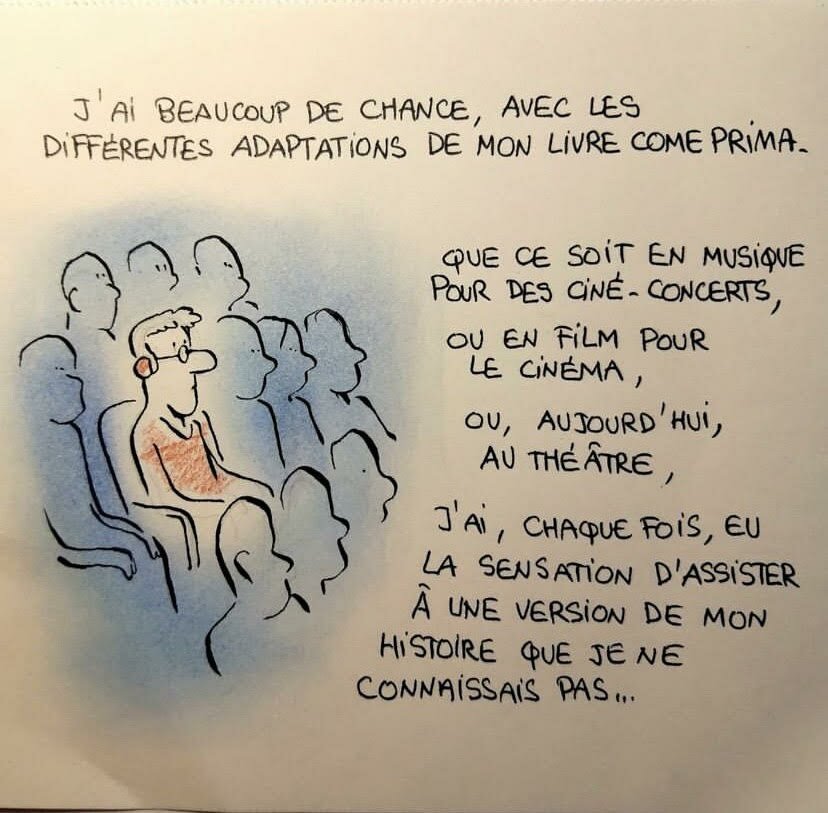 J'AI BEAUCOUP DE CHANCE, AVEC LES
DIFFÉRENTES ADAPTATIONS DE MON LIVRE COME PRIMA.
QUE CE SOIT EN MUSIQUE
POUR DES CINÉ-CONCERTS,
OU EN FILM POUR
LE CINÉMA,
OU, AUJOURD'HUI,
AU THÉÂTRE,
J'AI, CHAQUE FOIS, EU
LA SENSATION D'ASSISTER
À UNE VERSION DE MON
HISTOIRE QUE JE NE
CONNAISSAIS PAS...